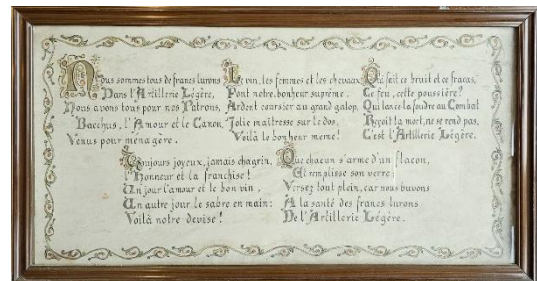 Nous sommes tous de francs lurons
Dans l'Artillerie Légère,
Nous avons tous pour nos Patrons,
Bacchus, l'Amour et le Canon,
Venus pour ménagère.
Le vin, les femmes et les chevaux,
Font notre bonheur suprême.
Ardent coursier au grand galop,
Jolie maîtresse sur le dos,
Voilà le bonheur meme!
Où fait ce bruit et ce fracas,
Ce feu, cette poussière?
Qui lance la foudre au Combat
Reçoit la mort, ne se rend pas,
C'est l'Artillerie Légère.
Toujours joyeux, jamais chagrin,
l'Honneur et la franchise!
Un jour l'amour et le bon vin,
Un autre jour le sabre en main:
Voilà notre devise!
Que chacun s'arme d'un flacon,
Et remplisse son verre;
Versez tout plein, car nous buvons
A la santé des francs lurons
De l'Artillerie Légère.